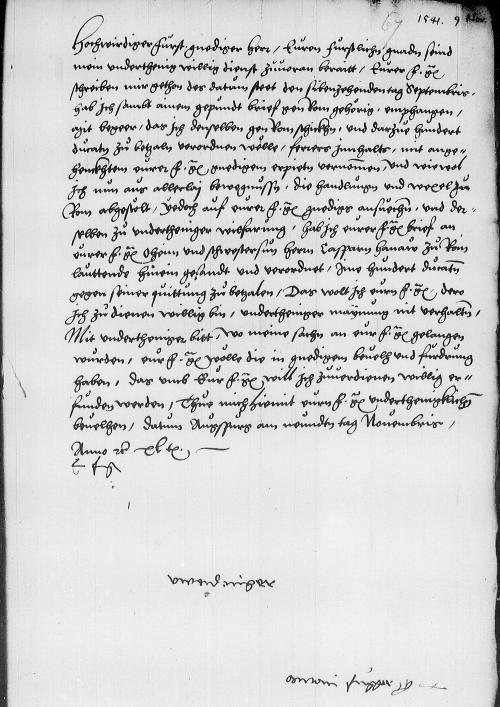 67 1541. 9 Nov.
Hochwirdiger Fürst, gnediger herr, Euren Fürstlichn gnaden seind
mein underthenig willig dienst zuuoran berait, Eurer f. g.
schreiben mir gethon des datum steet den sibenzehenden tag Septembris,
hab ich sambt ainem gesandt brief gen Rom gehörig, emphangen,
mit beger, das ich denselben gen Rom schickhn, und darzue hundert
ducatn zu betzaln verordnen wölle, ferers Innhalts, mit ange-
henckhtem eurer f. g. gnedigem erpieten vernomen, und wiewol
ich nun aus allerlaj bewegnussn, die handlungen und wexel zu
Rom abgestelt, yedoch auf eurer f. g. gnedigs ansuechn, und der-
selben zu undertheniger wilfarung, hab ich eurer f. g. brief an
eurer f. g. Oheim und schwestersun herrn Casparn Hanaw zu Rom
lauttende hinein gesandt und verordnet, Ime hundert ducatn
gegen seiner quittung zu betzalen, Das wolt ich eurn f. g. dero
ich zu dienen willig bin, undertheniger maynung nit verhaltn,
Mit undertheniger bitt, wo meine sachn an eur f. g. gelangen
wurden, eur f. g. wölle die in gnedigem beuelh und furdrung
haben, das umb Eur f. g. will ich zuuerdienen willig er-
funden werden, Thue mich hiemit eurn f. g. underthenigklichn
beuelhen, datum Augspurg am neundten tag Nouembris,
Anno &c xlj.
E f g
undertheniger
Antoni Fugger